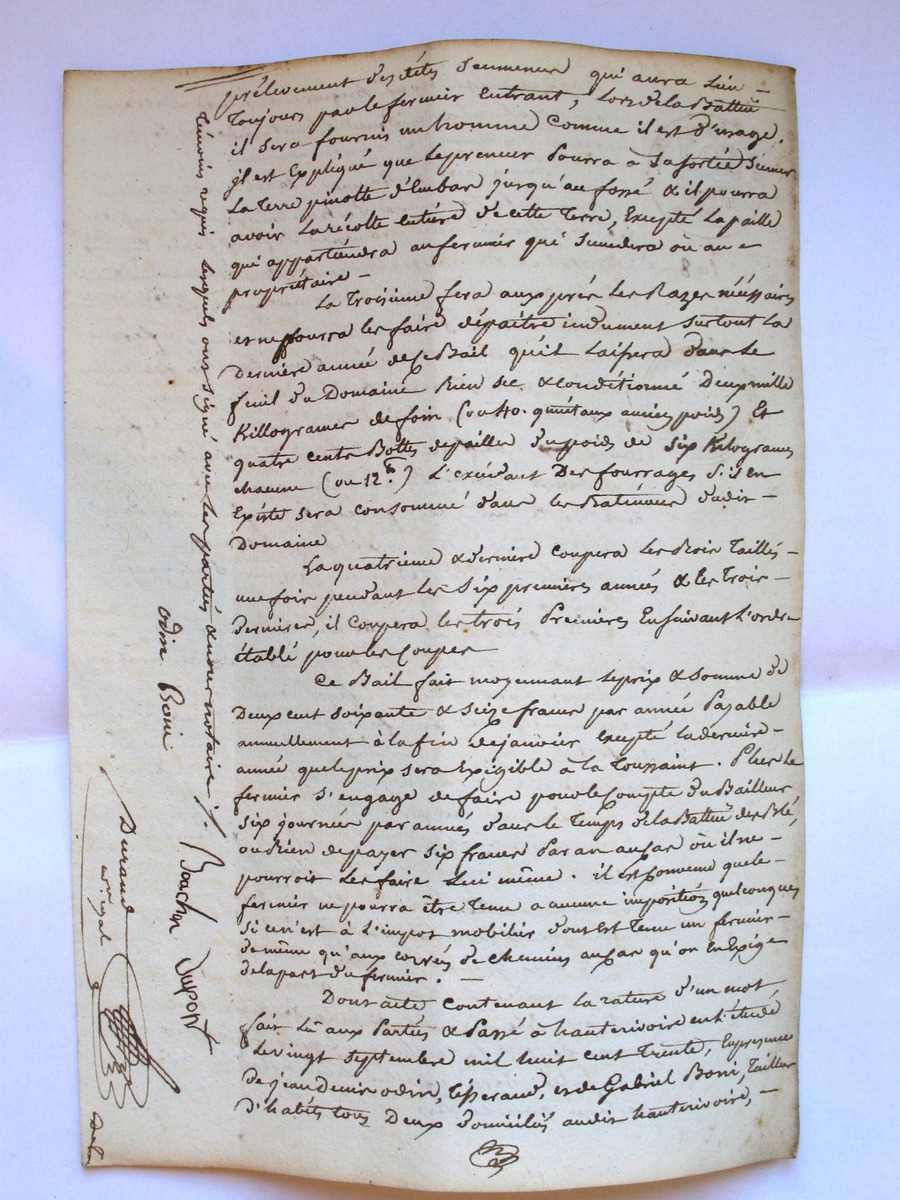 prélevement des dites semences qui aura lieu -
Toujours par le fermier entrant, Lors de la Battue
il sera fournis un homme Comme il est d'usage.
il est Expliqué que le preneur Pourra à sa sortie semer
La Terre pinotte d'Embar jusqu'au fossé & il pourra
avoir La récolte entière de cette Terre, Excepté La paille
qui appartiendra au fermier qui succedera où au =
propriétaire -
La Troisième fera aux près les Razes nécessaires
et ne pourra les faire dépaître indument surtout La
Dernière année de ce Bail qu'il Laissera dans Le
fenil du Domaine Bien sec & conditionné Deux mille
Killogrames de foin (ou 40. quintaux anciens poids) Et
quatre cents Bottes de pailles du poids de six Kilogrames
chacune (ou 12.) L'excédant Des fourrages s'il en
Existe sera consommé dans les Batimens dudit -
Domaine
La quatrieme & derniere coupera Les Bois Taillis -
une fois pendant les Six premieres années & les Trois -
Dernieres, il Coupera les trois Premieres En suivant L'ordre
établé pour les Coupes
Ce Bail fait moyennant le prix & Somme de
Deux cent soixante & seize francs par année Payable
annuellement à la fin de janvier Excepté la derniere -
année que le prix sera Exigible à la Toussaint. Plus le
fermier s'engage de faire pour le Compte du Bailleur
six journées par années dans le Temps de la Battue des Blé,
ou Bien de payer six francs Par an au cas où il ne -
pourroit les faire Lui même. il Est Convenu que le -
fermier ne pourra être Tenu a aucune imposition quelconques
Si ce n'est à L'impot mobilier dont Est Tenu un fermier -
de même qu'aux corvés de chemins au cas qu'on En Exige
de la part du fermier. -
Dont acte Contenant La rature d'un mot,
fait Lû aux Parties & Passé à hauterivoire en l'étude
Le vingt Septembre mil huit cent Trente, En presence
de jean Denis odin, Tisserand, et de Gabriel Boni, Tailleur
D'habits tous Deux domiciliés audit hauterivoire, -
Témoins requis Lesquels ont signé avec les parties & nous notaire /.
odin Boni Bouchon Dupont
Durand